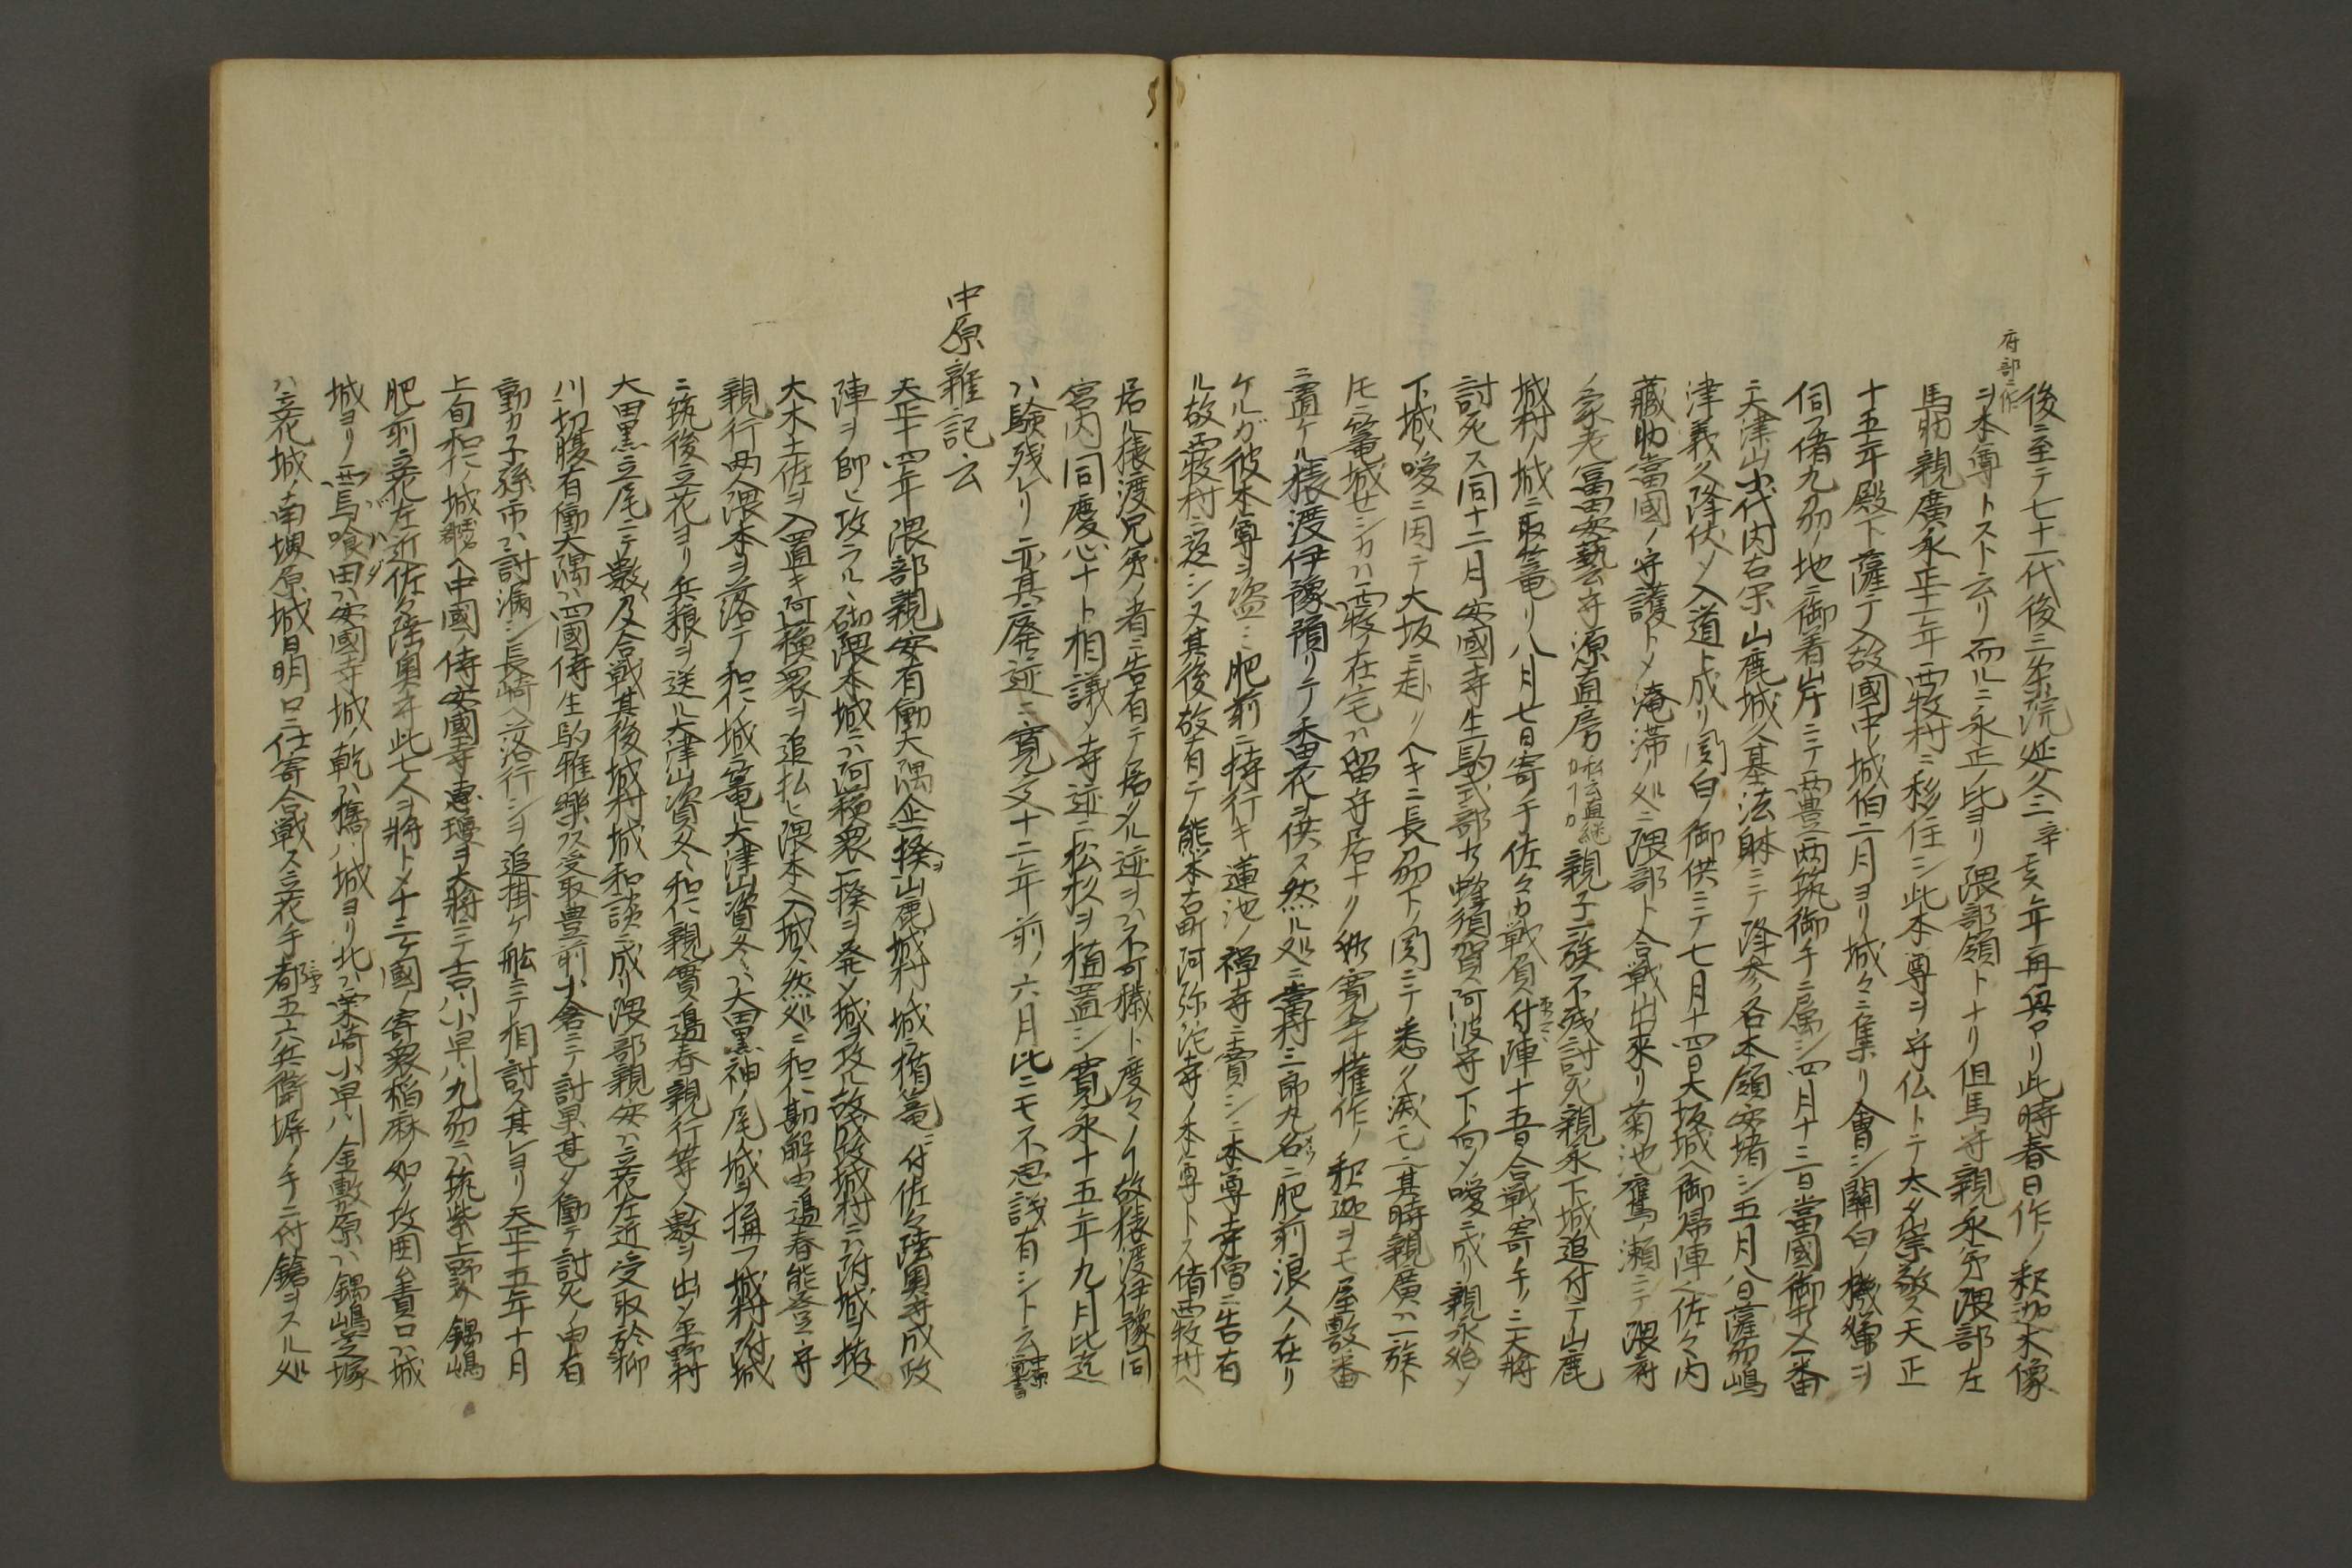 後ニ至テ七十一代後三条院延久三辛亥年再興アリ此時春日作ノ釈迦木像
府部ニ作
ヲ本尊トスト云リ而ルニ永正ノ比ヨリ隈部領トナリ但馬守親永弟隈部左
馬助親廣永正十一年西牧村ニ移住シ此本尊ヲ守仏トテ太タ崇敬ス天正
十五年殿下薩ニテ入故國中ノ城伯二月ヨリ城々ニ集リ會シ關白ノ機嫌ヲ
伺フ偖九州ノ地ニ御着岸ニテ両豊両筑御手ニ属シ四月十三日當國御打入一番
ニ大津山小代内右宗山鹿城久基法躰ニテ降参各本領安堵シ五月八日薩州嶋
津義久降伏ノ入道ト成リ関白ノ御供ニテ七月十四日大坂城ヘ御帰陣佐々内
藏助當國ノ守護トメ淹滞ノ処ニ隈部ト合戦出来リ菊池鷹ノ瀬ニテ隈府
ノ家老冨田安藝守源直房私云直継カ下カ親子一族不残討死親永下城追付テ山鹿
城村ノ城ニ取篭リ八月七日寄手佐々カ戦負付陣十五日合戦寄手ノ三大将
討死ス同十二月安國寺生駒式部少蜂須賀阿波守下向メ噯ニ成リ親永始メ
下城ノ噯ニ因テ大坂ニ赴クヘキニ長州下ノ関ニテ悉ク滅亡其時親廣ハ一族ト
厇ニ篭城セシカハ西牧ノ在宅ハ留守居ナリ
ニ置ケル様渡伊豫預リテ香花ヲ供ス然ル処ニ當村三郎丸名ニ肥前浪人ノ在リ
ケルガ彼本尊ヲ盗ミ肥前ニ持行キ蓮池ノ禅寺ニ賣シニ本尊寺僧ニ告有
ル故西牧村ニ返シ又其後故有テ熊本古町阿弥陀寺ノ本尊トス偖西牧村ヘ
居ル様渡兄弟ノ者ニ告有テ居タル迹ヲハ不可穢ト度々ノ故様渡伊豫同
宮内同慶心ナト相議メ寺迹ニ松杉ヲ植置シ寛永十五年九月比迄
ハ験残レリ亦其廃迹ニ寛文十二年前ノ六月比ニモ不思議有シト云
中原雜記云
天正十四年隈部親安有働大隅企一揆ヲ山鹿城村ノ城ニ楯篭ニ付佐々陸奥守成政
陣ヲ師ヒ攻ラル、砌隈本城ニハ阿蘓衆一揆ヲ発メ城ヲ攻ル故成政城村ニハ附城ヲ拵
大木土佐ヲ入置キ阿蘓衆ヲ追払ヒ隈本入城ス然処ニ和仁勘解由邉春能登守
親行両人隈本ヲ落テ和仁ノ城ニ篭ル大津山資冬ハ大田黒神ノ尾ノ城ヲ搆フ城村ノ附城
ニ筑後立花ヨリ兵粮ヲ送ル大津山資冬和仁親實邉春親行等人数ヲ出メ平野村
大田黒立尾ニテ數及合戦其後城村城和談ニ成リ隈部親安ハ立花左近受取於柳
川切腹有働大隅ハ四國侍生駒雅樂介受取豊前小倉ニテ討果甚タ働テ討死ノ由有
動カ子孫市ハ討漏シ長崎ヘ落行シヲ追掛ケ舩ニテ相討ス其レヨリ天正十五年十月
上旬和仁ノ城ヘ中國侍安國寺恵瓊ヲ大将ニテ吉川小早川九州ニハ筑紫上野介鍋嶋
肥前立花左近佐々陸奥守此七人ヲ将トメ十二ヶ國ノ寄衆稲麻ノ如ク攻囲ム責口ハ城
城ヨリ西馬喰田ハ安國寺城ノ乾ハ橋川城ヨリ北ハ栗崎小早川金敷原ハ鍋嶋芝塚
ハ立花城ノ南堀原城日明口ニ仕寄合戦ス立花手都五六兵衛塀ノ手ニ付鑓ヲスル処